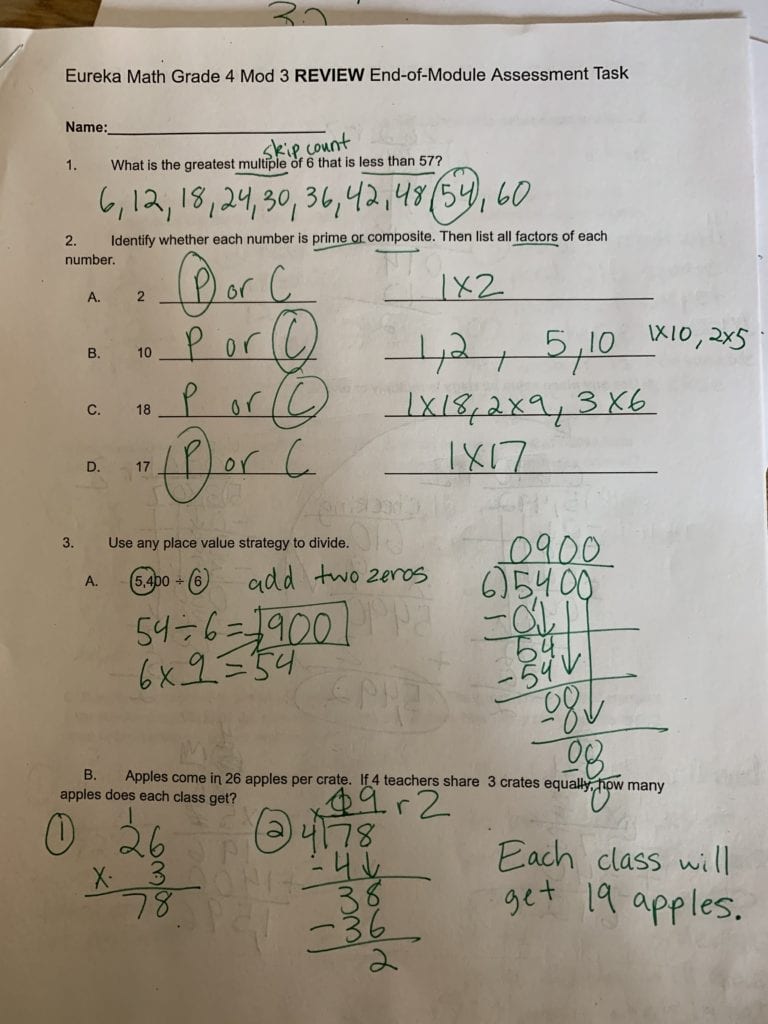 Eureka Math Grade 4 Mod 3 REVIEW End-of-Module Assessment Task
Name:
skip count
1. What is the greatest multiple of 6 that is less than 57?
6, 12, 18, 24, 30, 36, 42, 48, 54, 60
2. Identify whether each number is prime or composite. Then list all factors of each
number.
A. 2 P or C 1x2
B. 10 P or C 1, 2, 5, 10 1x10, 2x5
C. 18 P or C 1x18, 2x9, 3x6
D. 17 P or C 1x17
3. Use any place value strategy to divide.
A. 5,400 ÷ 6 add two zeros
54÷6=900
6x9=54
0900
6)5400
-0
54
-54
00
-0
00
-0
0
B. Apples come in 26 apples per crate. If 4 teachers share 3 crates equally, how many
apples does each class get?
1
1
26
x 3
78
2
19 r2
4)78
-4
38
-36
2
Each class will
get 19 apples.